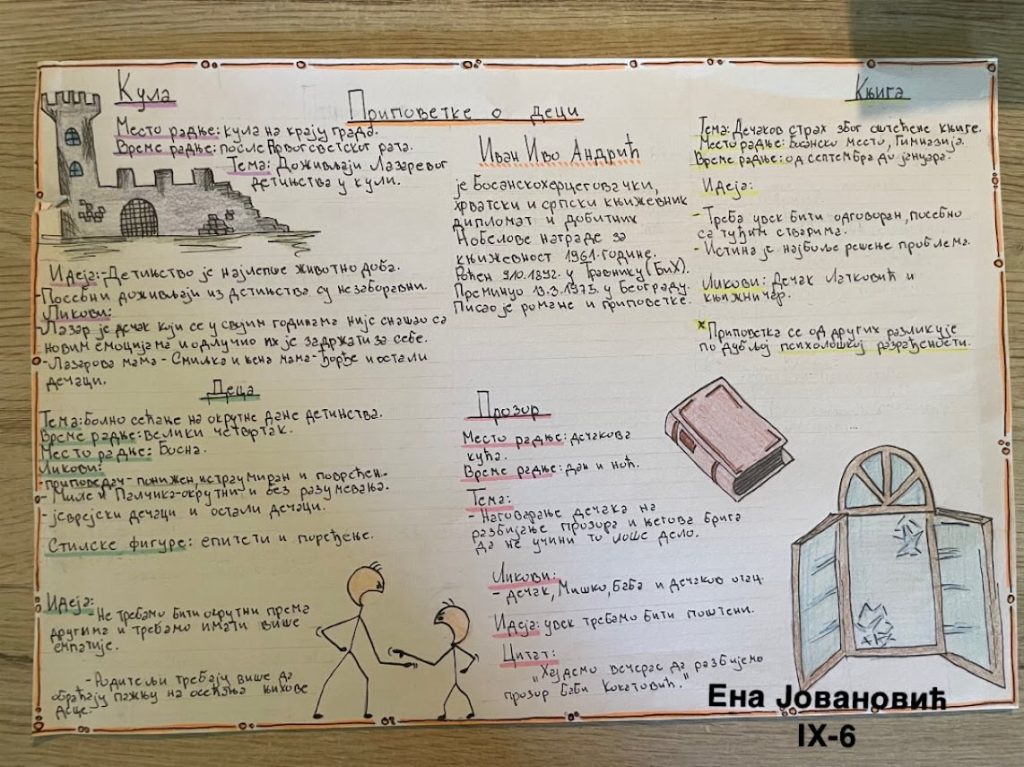 Приповетке о деци
Кула
Место радње: кула на крају града.
Време радње: после Првог светског рата.
Тема: Доживљаји Лазаревог
детинства у кули.
Идеја: -Детинство је најлепше животно доба.
-Посебни доживљаји из детинства су незаборавни.
Ликови:
-Лазар је дечак који се у својим годинама није снашао са
новим емоцијама и одлучио их је задржати за себе.
-Лазарова мама - Смилка и њена мама-Ђорђе и остали
дечаци.
Деца
Тема: Болно сећање на окрутне дане детинства.
Време радње: велики четвртак.
Место радње: Босна.
Ликови:
-приповедач- понижен, истраумиран и повређен.
- Миле и Палчика-окрутни и без разумевања.
- јеврејски дечаци и остали дечаци.
Стилске фигуре: епитети и поређење.
Идеја:
-Не требамо бити окрутни према
другима и требамо имати више
емпатије.
-Родитељи требају више да
обраћају пажњу на осећања њихове
деце.
Иван Иво Андрић
је босанскохерцеговачки,
хрватски и српски књижевник
дипломат и добитник
Нобелове награде за
књижевност 1961. године.
Рођен 9.10.1892. у Травнику (БиХ).
Преминуо 13.3.1975. у Београду.
Писао је романе и приповетке.
Прозор
Место радње: дечакова
кућа.
Време радње: дан и ноћ.
Тема:
- Наговарање дечака на
разбијање прозора и његова брига
да не учини то лоше дело.
Ликови:
- дечак, Мишко, баба и дечаков отац.
Идеја: увек требамо бити поштени.
Цитат:
„Хајдемо вечерас да разбијемо
прозор баби Кокотовић."
Књига
Тема: Дечаков страх због оштећене књиге.
Место радње: Босанско место, Гимназија.
Време радње: од септембра до јануара.
Идеја:
- Треба увек бити одговоран, посебно
са туђим стварима.
- Истина је најбоље решење проблема.
Ликови: Дечак Латковић и
књижничар.
*Приповетка се од других разликује
по дубљој психолошкој разрађености.
Ена Јовановић
IX-6